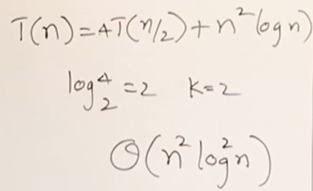 T(n)=4T(n/2)+n²logn)
log₂⁴=2 K=2
Θ(n²log²n)